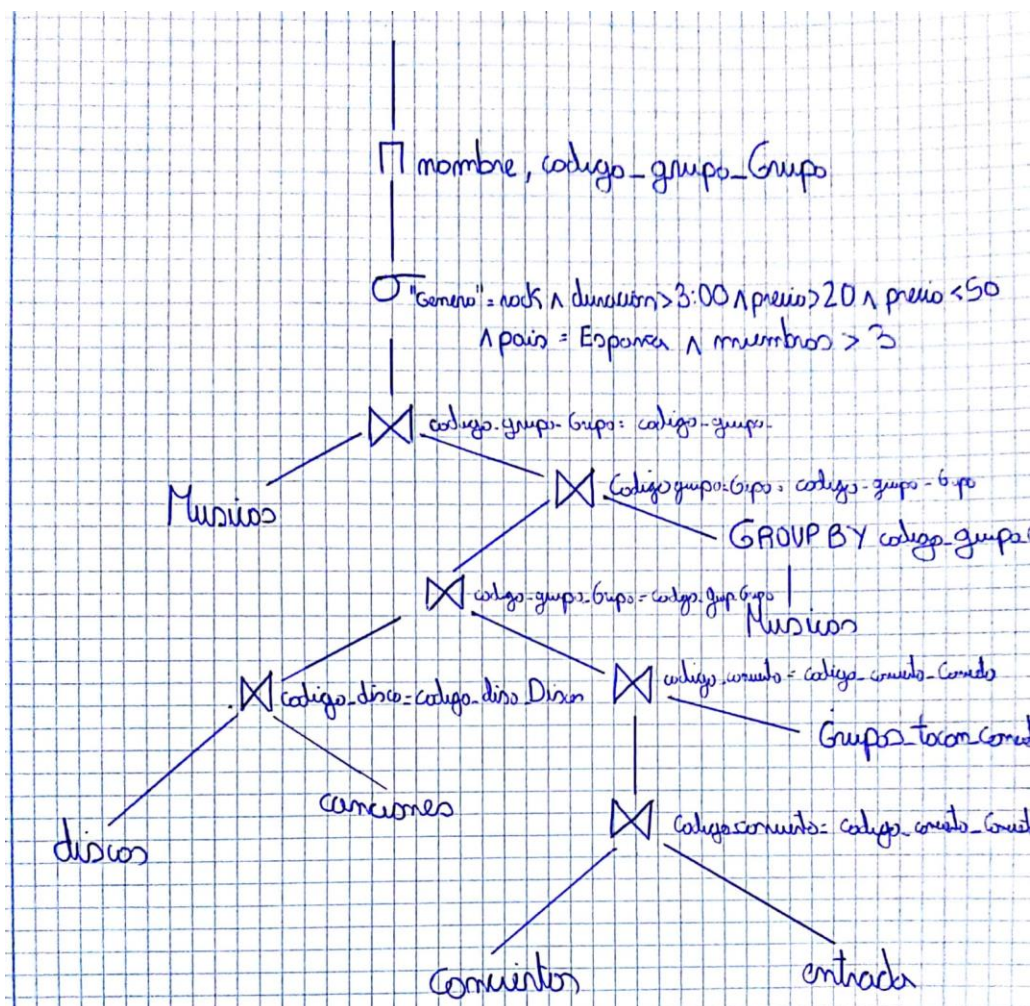 Π nombre, codigo_grupo_Grupo
σ "Genero" = rock ∧ duracion > 3:00 ∧ precio > 20 ∧ precio < 50
∧ pais = España ∧ miembros > 3
⋈ codigo_grupo_Grupo = codigo_grupo_
Musicos
⋈ Codigo grupo = Grupo = codigo_grupo_Grupo
GROUP BY codigo_grupo
⋈ codigo_grupo_Grupo = codigo_grup_Grupo
Musicos
⋈ codigo_disco = codigo_disco_Discos
⋈ codigo_concierto = codigo_concierto_Concierto
Grupos_tocan_Conciert
canciones
⋈ codigo concierto = codigo_concierto_Conciert
discos
conciertos
entrada